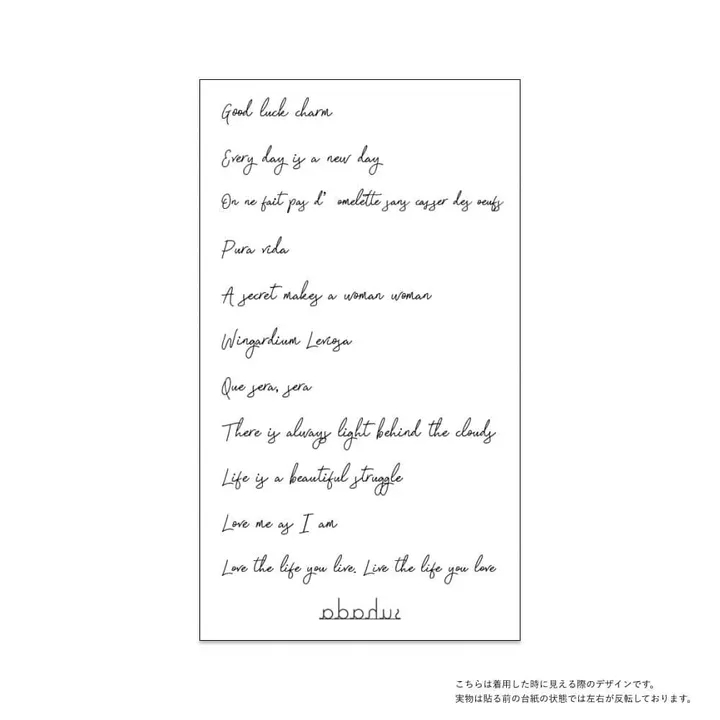 Good luck charm
Every day is a new day
On ne fait pas d’ omelette sans casser des oeufs
Pura vida
A secret makes a woman woman
Wingardium Leviosa
Que sera, sera
There is always light behind the clouds
Life is a beautiful struggle
Love me as I am
Love the life you live. Live the life you love
suhada
こちらは着用した時に見える際のデザインです。
実物は貼る前の台紙の状態では左右が反転しております。